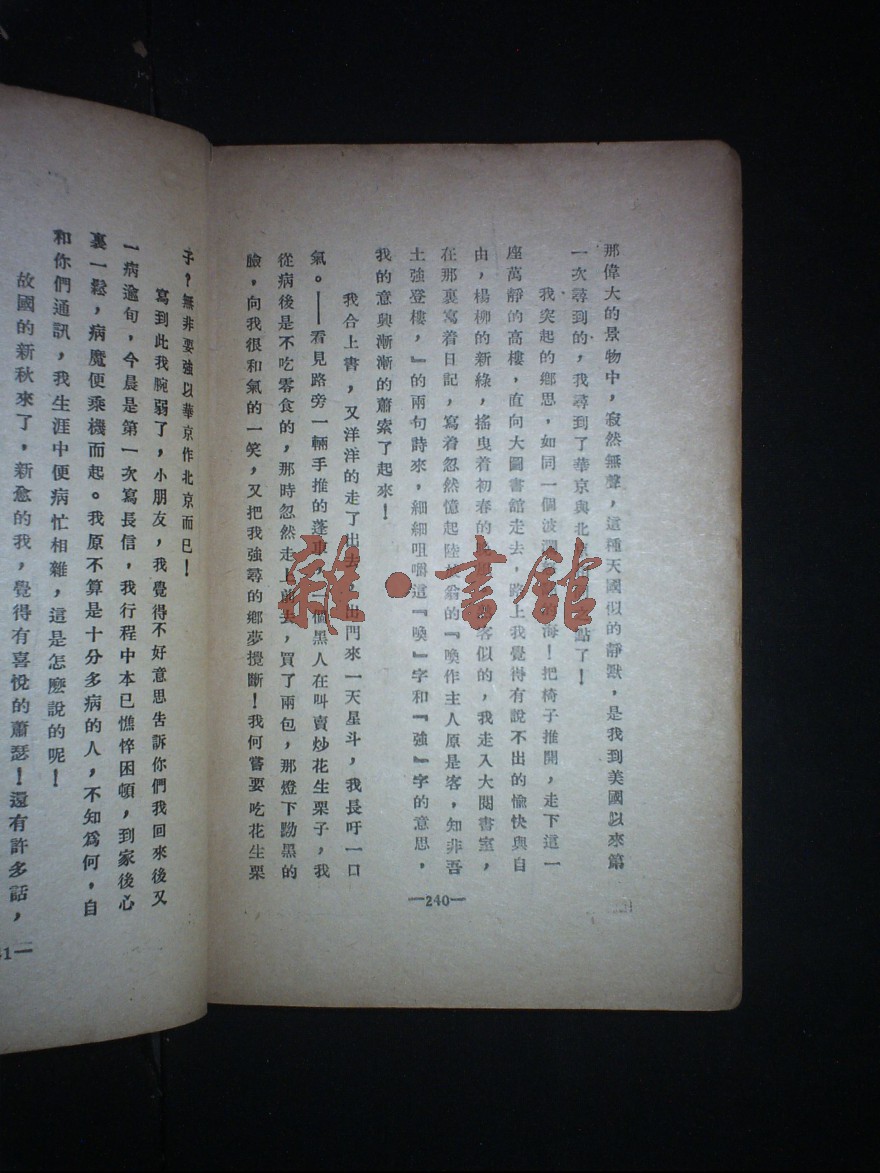 那偉大的景物中，寂然無聲，這種天國似的靜默，是我到美國以來第
一次尋到的，我尋到了華京與北京點了！
我突起的鄉思，如同一個波瀾的海！把椅子推開，走下這一
座萬靜的高樓，直向大圖書館走去，路上我覺得有說不出的愉快與自
由，楊柳的新綠，搖曳着初春的客似的，我走入大閱書室，
在那裏寫着日記，寫着忽然憶起陸放翁的『喚作主人原是客，知非吾
土強登樓，』的兩句詩來，細細咀嚼這『喚』字和『強』字的意思，
我的意興漸漸的蕭索了起來！
我合上書，又洋洋的走了出去，出門來一天星斗，我長吁一口
氣。——看見路旁一輛手推的蓬車，一個黑人在叫賣炒花生栗子，我
從病後是不吃零食的，那時忽然走上前去，買了兩包，那燈下黝黑的
臉，向我很和氣的一笑，又把我強尋的鄉夢攪斷！我何嘗要吃花生栗
—240—
子？無非要強以華京作北京而已！
寫到此我腕弱了，小朋友，我覺得不好意思告訴你們我回來後又
一病逾旬，今晨是第一次寫長信，我行程中本已憔悴困頓，到家後心
裏一鬆，病魔便乘機而起。我原不算是十分多病的人，不知爲何，自
和你們通訊，我生涯中便病忙相雜，這是怎麼說的呢！
故國的新秋來了，新愈的我，覺得有喜悅的蕭瑟！還有許多話，
41—
雜·書館